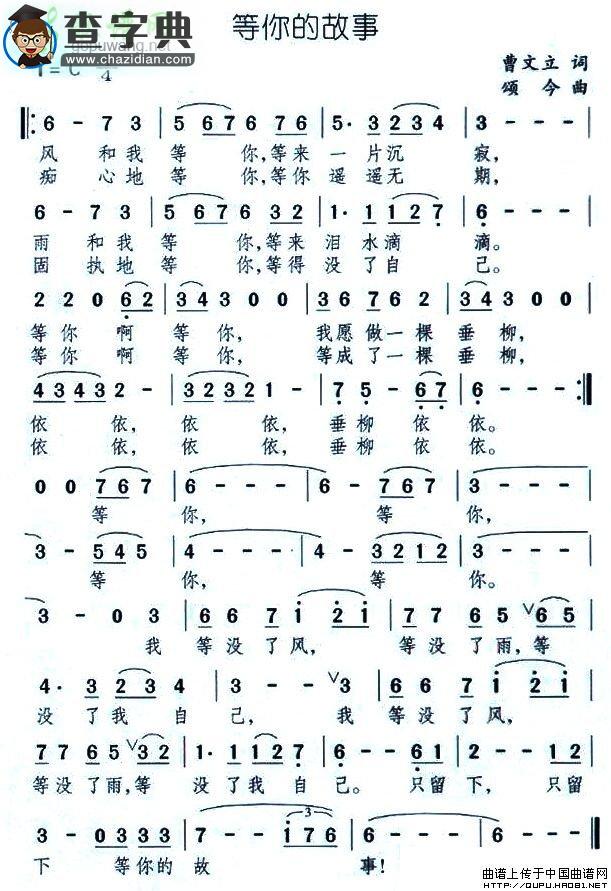 等你的故事
查字典
www.chazidian.com
曹文立 词
颂今 曲
4
6 - 7 3 | 5 6 7 6 7 6 | 5· 3 2 3 4 | 3 - - - |
风 和我 等 你,等来 一 片沉 寂,
痴 心地 等 你,等你 遥 遥无 期,
6 - 7 3 | 5 6 7 6 3 2 | 1· 1 1 2 7 | 6 - - - |
雨 和我 等 你,等来 泪 水滴 滴。
固 执地 等 你,等得 没 了自 己。
2 2 0 6 2 | 3 4 3 0 0 | 3 6 7 6 2 | 3 4 3 0 0 |
等你 啊 等 你, 我愿做一棵 垂 柳,
等你 啊 等 你, 等成了一棵 垂柳,
4 3 4 3 2 - | 3 2 3 2 1 - | 7 5 - 6 7 | 6 - - - :|
依 依, 依 依, 垂柳 依 依。
依 依, 依 依, 垂柳 依 依。
0 0 7 6 7 | 6 - - - | 6 - 7 6 7 | 3 - - - |
等 你, 等 你,
3 - 5 4 5 | 4 - - - | 4 - 3 2 1 2 | 3 - - - |
等 你, 等 你。
3 - 0 3 | 6 6 7 1 2 1 | 7 7 6 5 ∨ 6 5 |
我 等没了风, 等没了雨,等
4· 3 2 3 4 | 3 - - ∨ 3 | 6 6 7 1 2 1 |
没 了我 自 己, 我 等没了风,
7 7 6 5 ∨ 3 2 | 1· 1 1 2 7 | 6 - - 6 1 | 2 - - 1 2 |
等没了雨,等 没 了我 自 己。只留 下, 只留
3 - 0 3 3 3 | 7 - - 1 7 6 | 6 - - - | 6 - - - |
3
下 等你的 故 事!
曲谱上传于中国曲谱网
HTTP://QUPU.HAO81.NET